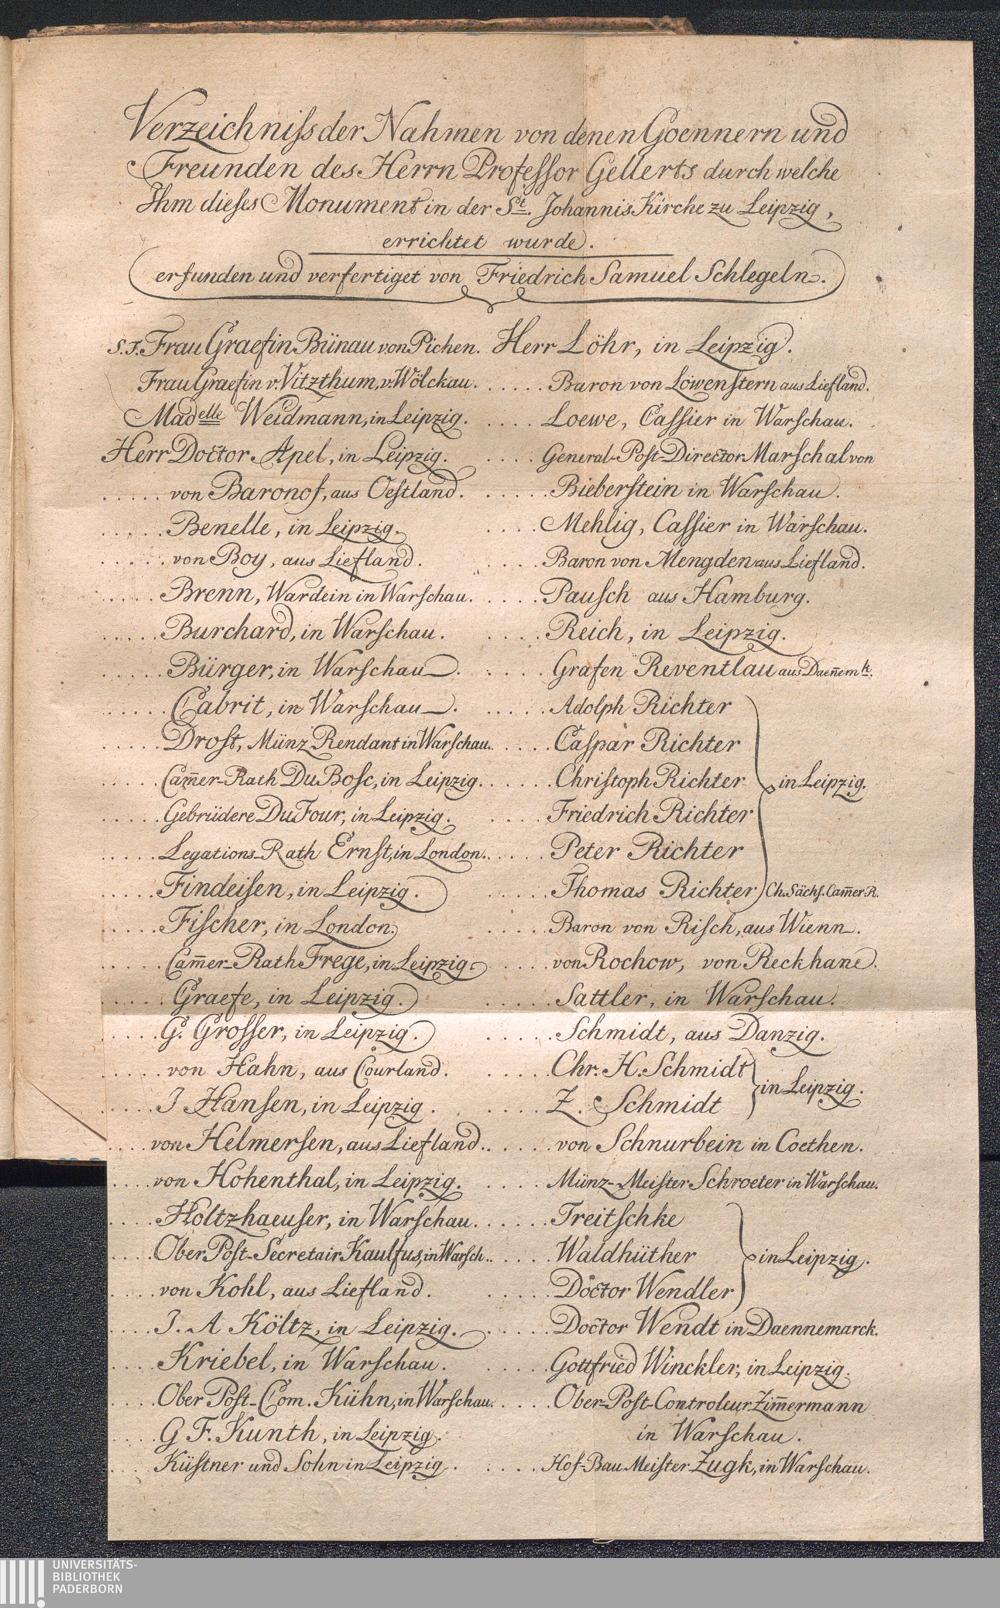 Verzeichniſs der Nahmen von denen Goennern und
Freunden des Herrn Profeſſor Gellerts durch welche
Ihm dieſes Monument in der St. Johannis Kirche zu Leipzig,
errichtet wurde.
erfunden und verfertiget von Friedrich Samuel Schlegeln.
S.T. Frau Graefin Bünau von Pichen.
Frau Graefin v. Vitzthum, v. Wölckau.
Madelle Weidmann, in Leipzig.
Herr Doctor Apel, in Leipzig.
..... von Baronof, aus Oeſtland.
..... Benelle, in Leipzig.
..... von Boy, aus Liefland.
..... Brenn, Wardein in Warſchau.
..... Burchard, in Warſchau.
..... Bürger, in Warſchau.
..... Cabrit, in Warſchau.
..... Droſt, Münz Rendant in Warſchau.
..... Cam̅er-Rath Du Boſc, in Leipzig.
..... Gebrüdere Du Four, in Leipzig.
..... Legations-Rath Ernſt, in London.
..... Findeiſen, in Leipzig.
..... Fiſcher, in London.
..... Cam̅er-Rath Frege, in Leipzig.
..... Graefe, in Leipzig.
..... G. Groſſer, in Leipzig.
..... von Hahn, aus Courland.
..... J Hanſen, in Leipzig.
..... von Helmerſen, aus Liefland.
..... von Hohenthal, in Leipzig.
..... Holtzhaeuſer, in Warſchau.
..... Ober Poſt-Secretair Kaulfus, in Warſch.
..... von Kohl, aus Liefland.
..... J. A Költz, in Leipzig.
..... Kriebel, in Warſchau.
..... Ober Poſt-Com. Kühn, in Warſchau.
..... G F. Kunth, in Leipzig.
..... Küſtner und Sohn in Leipzig.
Herr Löhr, in Leipzig.
..... Baron von Löwenſtern aus Liefland.
..... Loewe, Caſſier in Warſchau.
..... General-Poſt-Director Marſchal von
..... Bieberſtein in Warſchau.
..... Mehlig, Caſſier in Warſchau.
..... Baron von Mengden aus Liefland.
..... Pauſch aus Hamburg.
..... Reich, in Leipzig.
..... Grafen Reventlau aus Daen̅emk.
..... Adolph Richter
..... Caſpar Richter
..... Chriſtoph Richter in Leipzig.
..... Friedrich Richter
..... Peter Richter
..... Thomas Richter Ch. Sächſ. Cam̅er R.
..... Baron von Riſch, aus Wienn.
..... von Rochow, von Reckhane.
..... Sattler, in Warſchau.
..... Schmidt, aus Danzig.
..... Chr. H. Schmidt
in Leipzig.
..... Z. Schmidt
..... von Schnurbein in Coethen.
..... Münz-Meiſter Schroeter in Warſchau.
..... Treitſchke
..... Waldhüther in Leipzig.
..... Doctor Wendler
..... Doctor Wendt in Daennemarck.
..... Gottfried Winckler, in Leipzig.
..... Ober-Poſt-Controleur Zim̅ermann
in Warſchau.
..... Hof-Bau Meiſter Zugk, in Warſchau.
UNIVERSITÄTS-
BIBLIOTHEK
PADERBORN